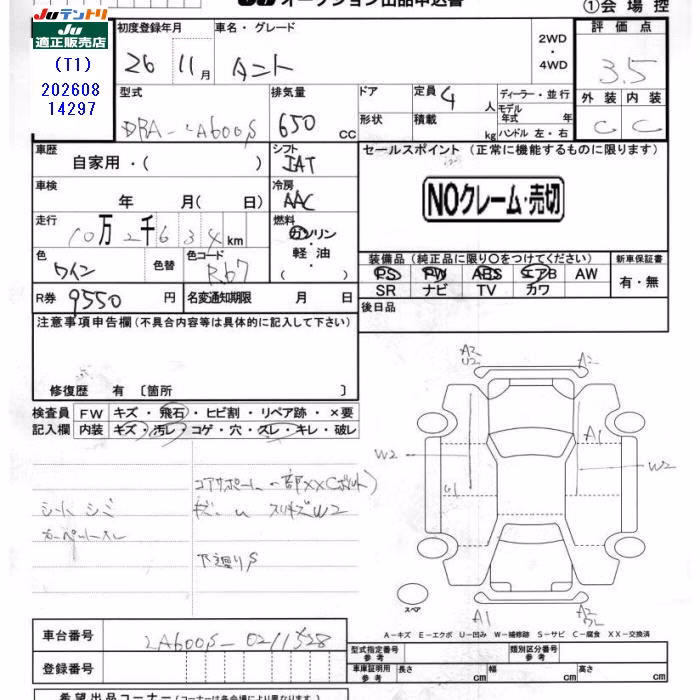 Juテントリ
Ju
適正販売店
(T1)
202608
14297
Ju オークション出品申込書
①会場控
初度登録年月
26 11月
車名・グレード
タント
2WD
・
4WD
評価点
3.5
外装 内装
C C
型式
DBA-LA600S
排気量
650 cc
ドア
形状
定員 4 人
積載 kg
ディーラー・並行
モデル年式 年
ハンドル 左・右
車歴
自家用・( )
シフト
IAT
セールスポイント (正常に機能するものに限ります)
NOクレーム・売切
車検
年 月( 日)
冷房
AAC
走行
10万2千634km
燃料
ガソリン
・
軽油
( )
色
ワイン
色替
色コード
R67
装備品 (純正品に限り〇をつけてください)
PS PW ABS エアB AW
SR ナビ TV カワ
新車保証書
有・無
R券 9550 円
名変通知期限 月 日
後日品
注意事項申告欄(不具合内容等は具体的に記入して下さい)
修復歴 有 〔箇所 〕
検査員
記入欄
FW キズ・飛石・ヒビ割・リペア跡・×要
内装 キズ・汚レ・コゲ・穴・スレ・キレ・破レ
シートシミ
コアサポート 一部××(ボルト)
W2
下廻りS
A2
U2
A2
A1
W2
W2
U1
スペア
A1
A2
A-キズ E-エクボ U-凹み W-補修跡 S-サビ C-腐食 XX-交換済
車台番号
LA600S-0211528
登録番号
型式指定番号
参考
類別区分番号
参考
車庫証明用
参考
長さ cm 幅 cm 高さ cm
希望出品コーナー(コーナーは各会場により異なります)